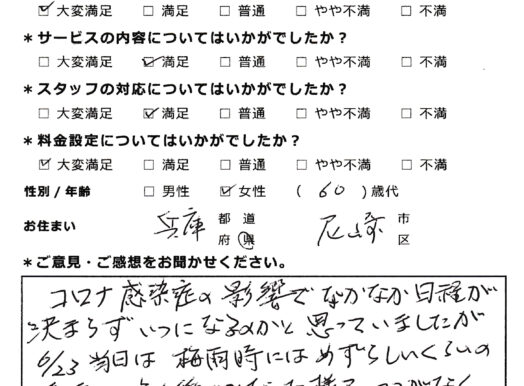 ☑ 大変満足 □ 満足 □ 普通 □ やや不満 □ 不満
＊サービスの内容についてはいかがでしたか？
□ 大変満足 ☑ 満足 □ 普通 □ やや不満 □ 不満
＊スタッフの対応についてはいかがでしたか？
□ 大変満足 ☑ 満足 □ 普通 □ やや不満 □ 不満
＊料金設定についてはいかがでしたか？
☑ 大変満足 □ 満足 □ 普通 □ やや不満 □ 不満
性別/年齢 □ 男性 ☑ 女性 ( 60 )歳代
お住まい 兵庫 都 道 府 県 尼崎 市 区
＊ご意見・ご感想をお聞かせください。
コロナ感染症の影響でなかなか日程が
決まらずいつになるのかと思っていましたが
6/23 当日は 梅雨時にはめずらしいくらいの